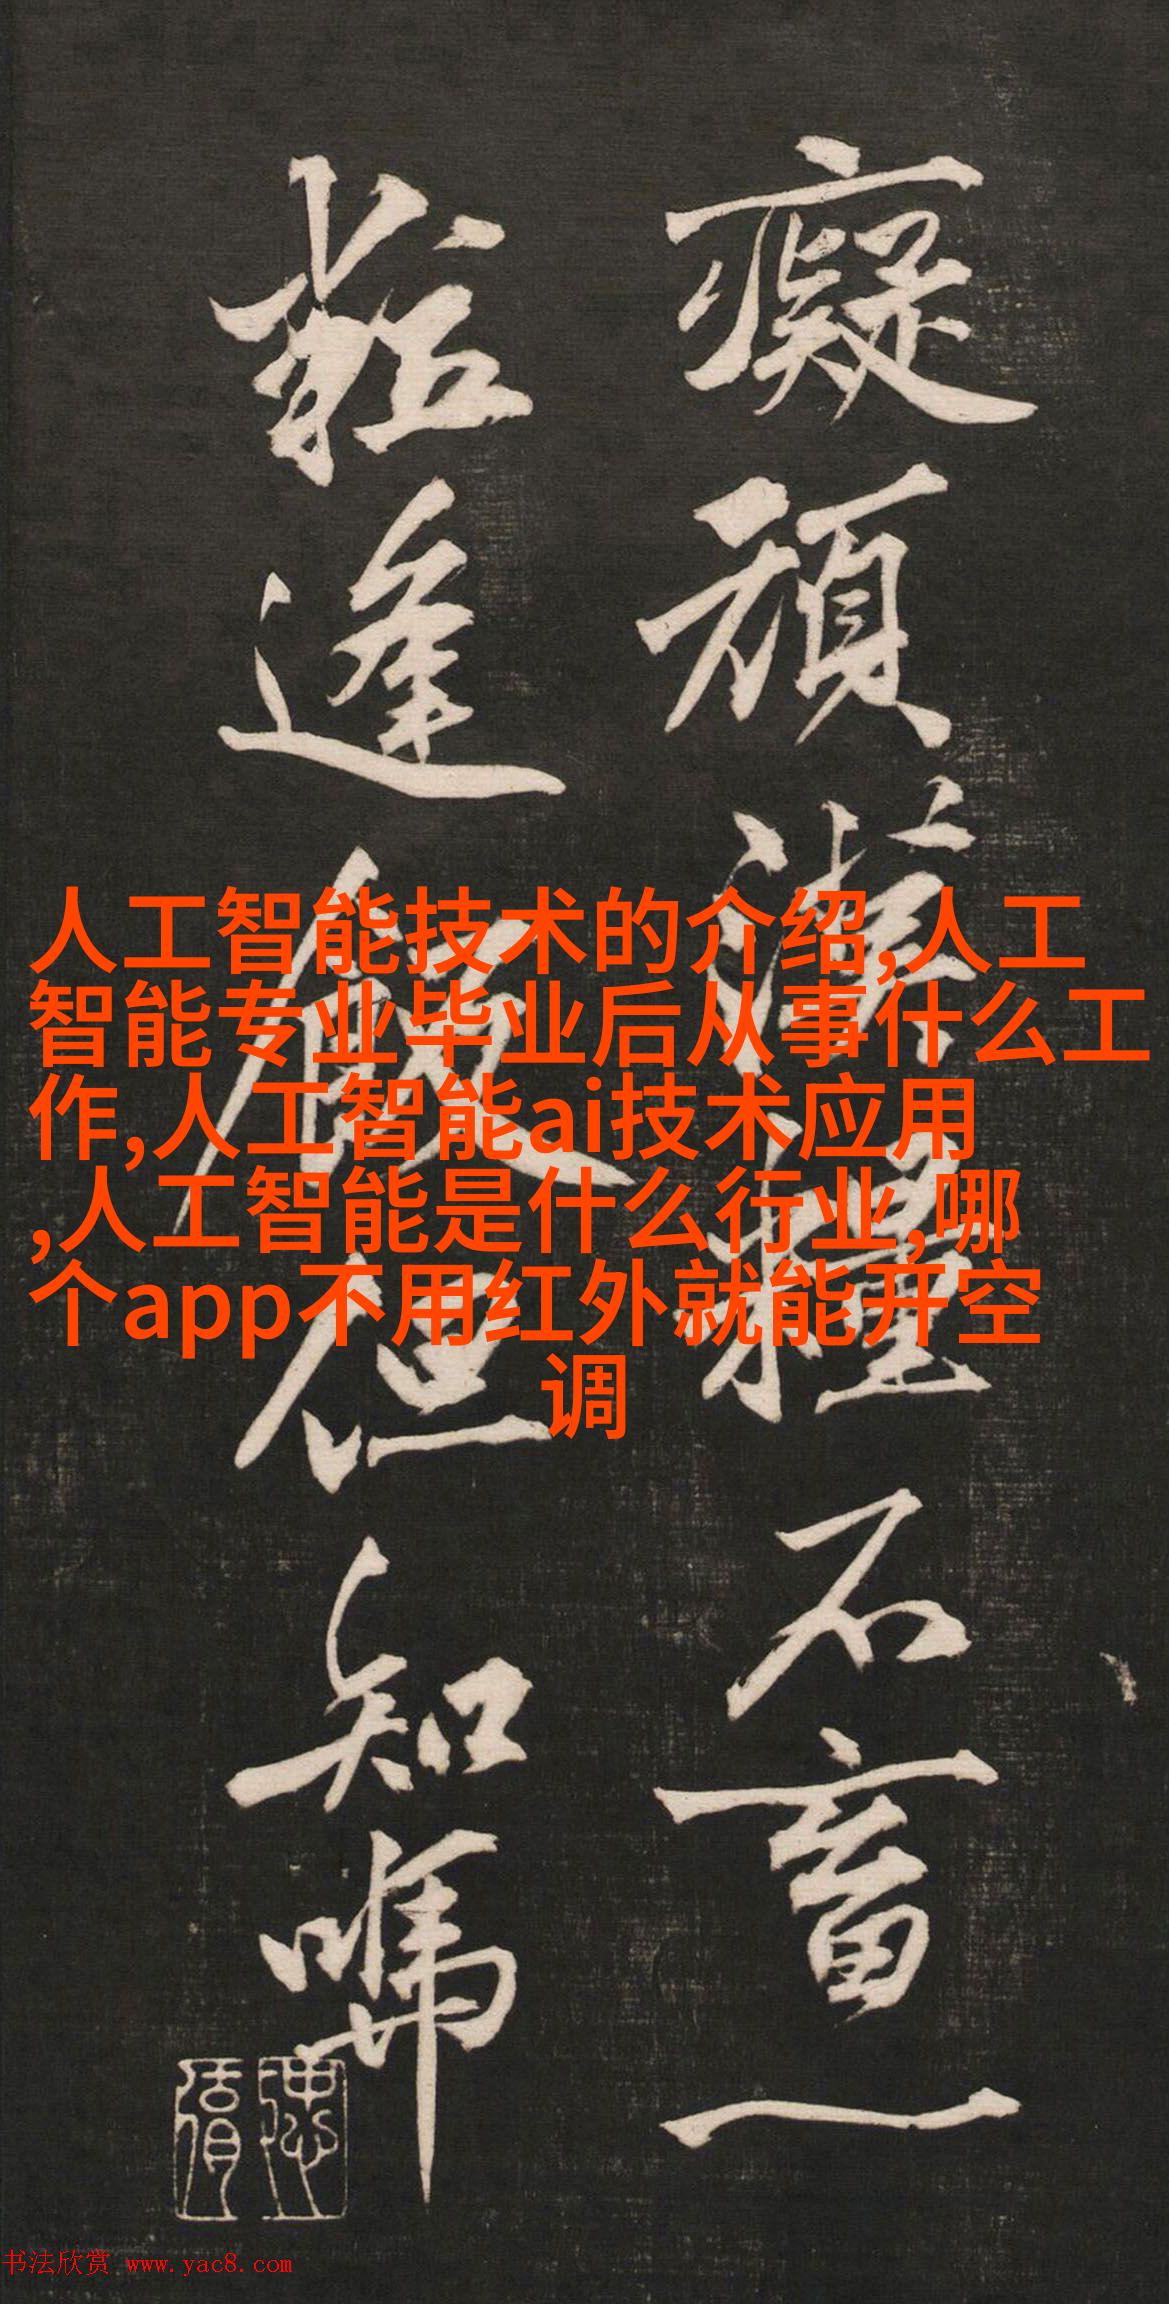 癡頑漢糧不畜一
粒逢飯但知嚼
人工智能技术的介绍,人工
智能专业毕业后从事什么工
作,人工智能ai技术应用
,人工智能是什么行业,哪
个app不用红外就能开空
调
书法欣赏 www.yac8.com